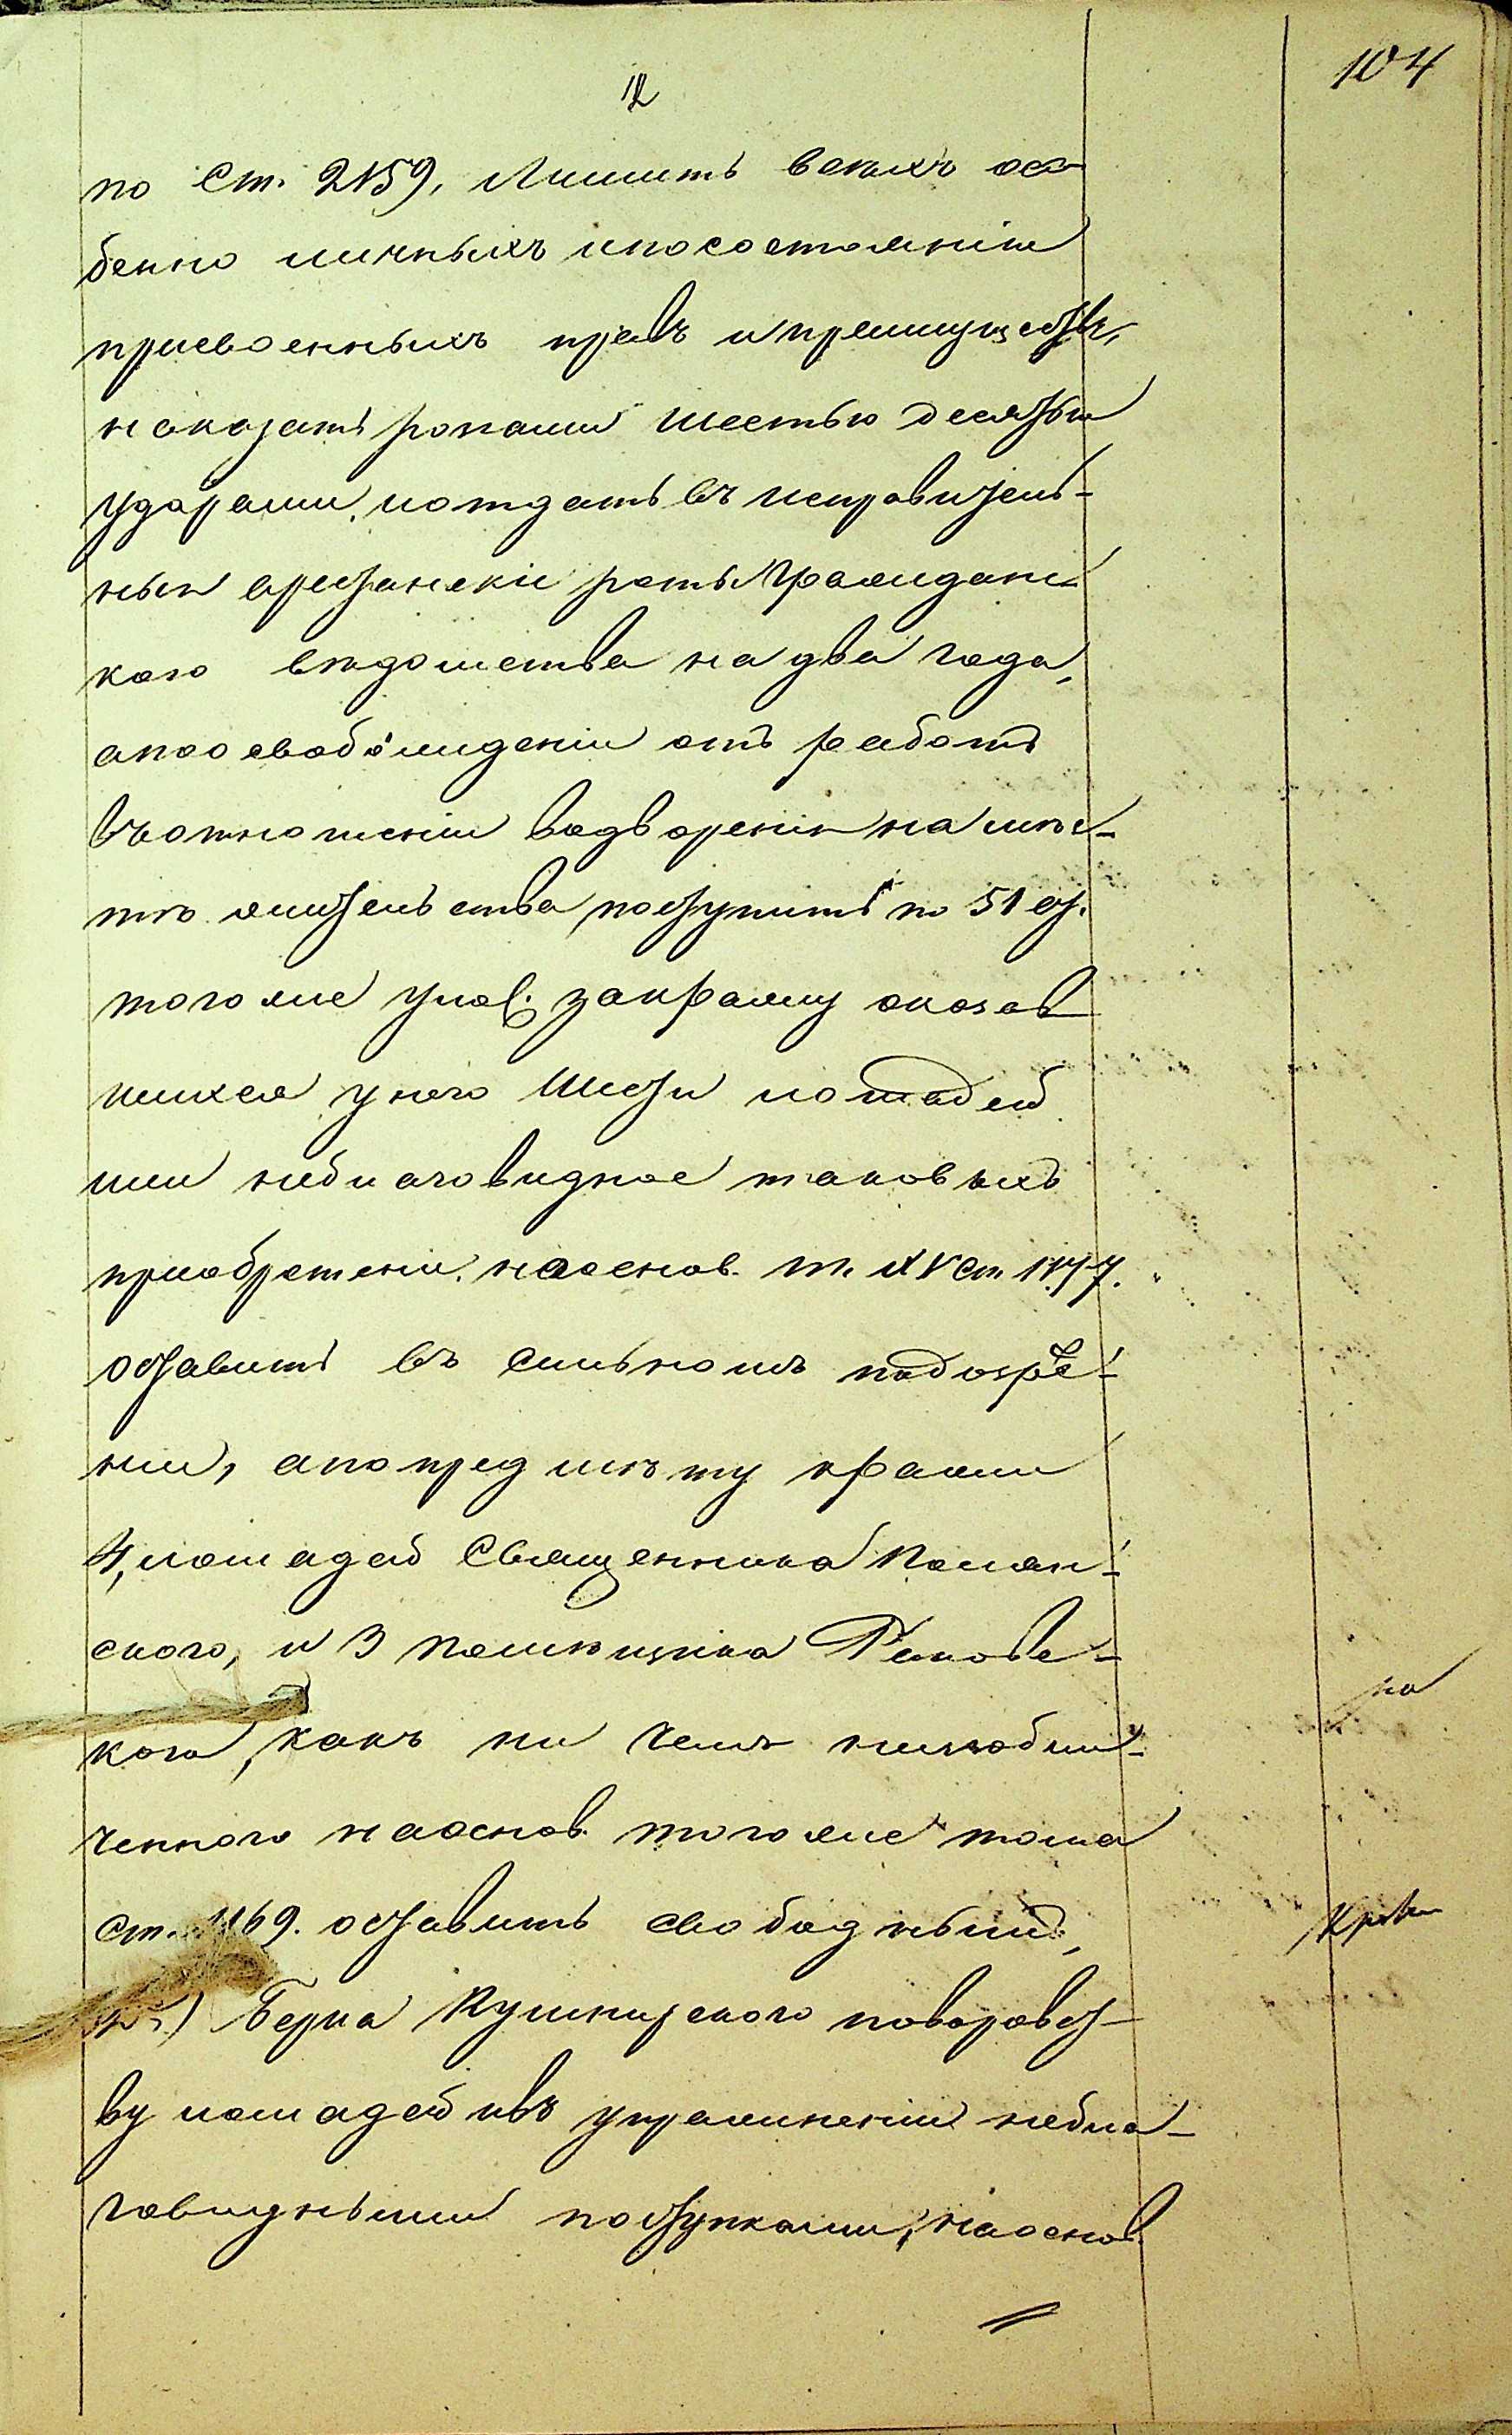 104
12
по ст. 2159, Лишить всехъ осо-
бенно личныхъ и по состоянію
присвоенныхъ правъ и преимуществъ,
наказать розгами шестью десятью
ударами, и отдать въ исправитель-
ныя арестанскіе роты Гражданс-
каго вѣдомства на два года,
а по освобожденіи отъ работъ
въ отношеніи водворенія на мѣс-
то жительства, поступить по 51 ст.
того же улож. за кражу оказав
шихся у него шести лошадей
или неблаговидное таковыхъ
приобретеніе, на основ. т. XV ст. 1177.
оставить въ сильномъ подозрѣ-
нии, а по предмѣту кражи
4, лошадей Священника Полян-
ского, и 3 помѣщика Раковс-
кого, какъ ни чемъ не изобли-
ченного на основ. того же тома
ст. 1169. оставить свободнымъ,
Берка Кушнирского по воровст-
ву лошадей и въ упражненіи небла-
говидными поступками, на основ.